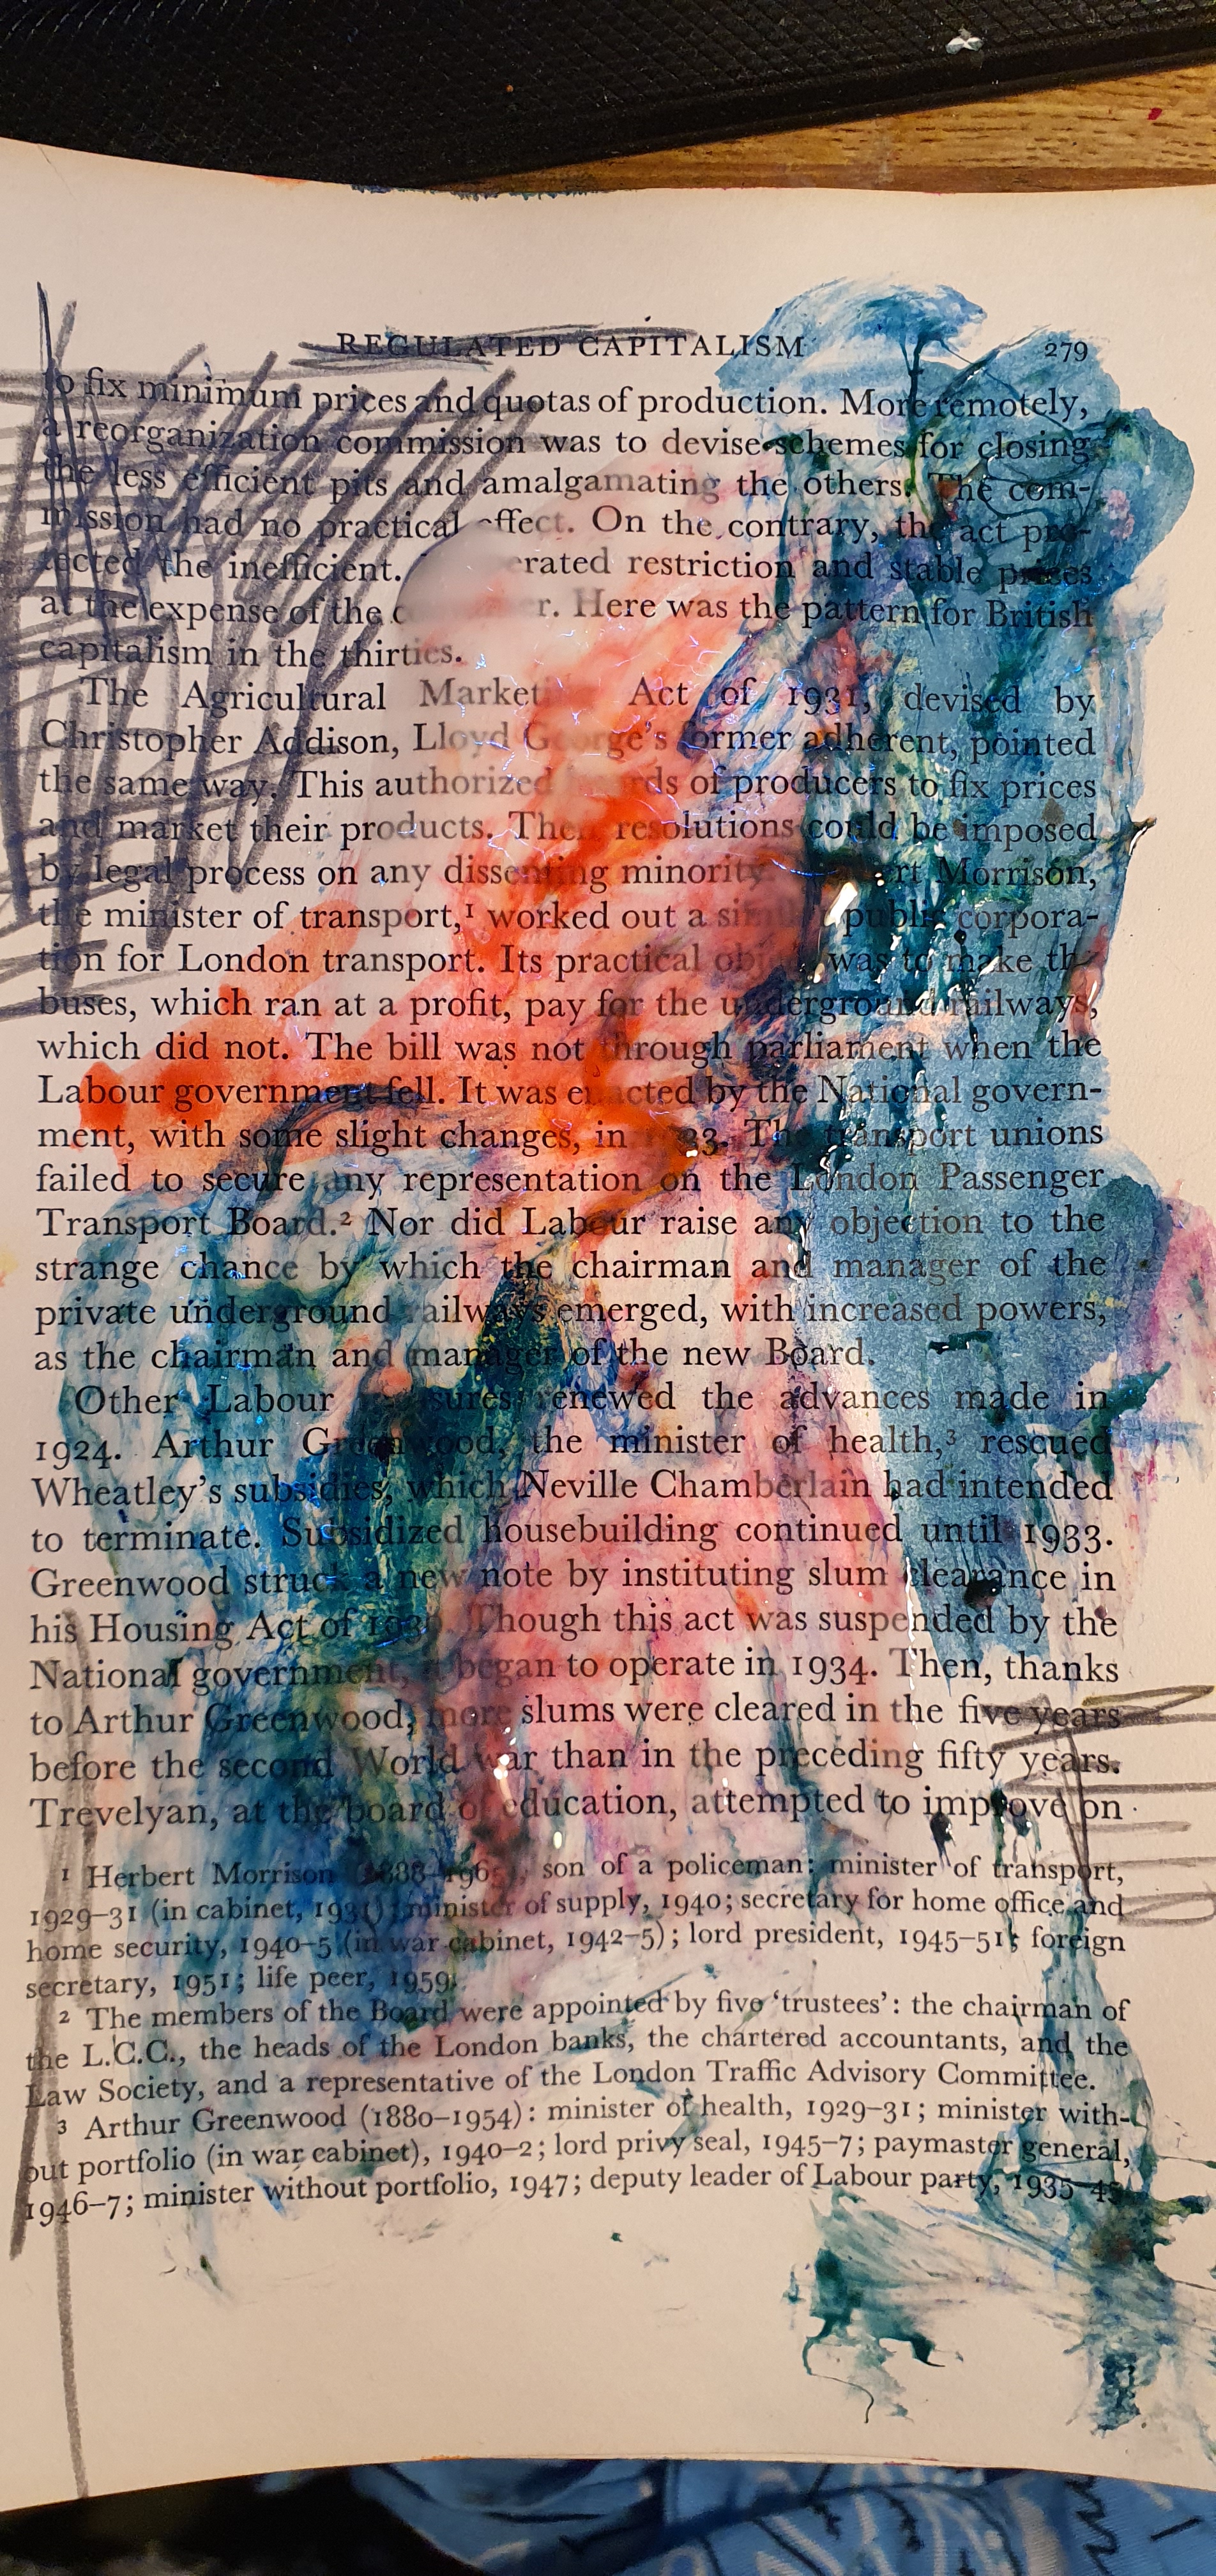 REGULATED CAPITALISM 279
to fix minimum prices and quotas of production. More remotely,
a reorganization commission was to devise schemes for closing
the less efficient pits and amalgamating the others. The com-
mission had no practical effect. On the contrary, the act pro-
tected the inefficient. erated restriction and stable prices
at the expense of the r. Here was the pattern for British
capitalism in the thirties.
The Agricultural Market Act of 1931, devised by
Christopher Addison, Lloyd George's former adherent, pointed
the same way. This authorized boards of producers to fix prices
and market their products. Then resolutions could be imposed
by legal process on any dissenting minority. Herbert Morrison,
the minister of transport,¹ worked out a similar public corpora-
tion for London transport. Its practical object was to make the
buses, which ran at a profit, pay for the underground railways,
which did not. The bill was not through parliament when the
Labour government fell. It was enacted by the National govern-
ment, with some slight changes, in 33. The transport unions
failed to secure any representation on the London Passenger
Transport Board.² Nor did Labour raise any objection to the
strange chance by which the chairman and manager of the
private underground railways emerged, with increased powers,
as the chairman and manager of the new Board.
Other Labour measures renewed the advances made in
1924. Arthur Greenwood, the minister of health,³ rescued
Wheatley's subsidies, which Neville Chamberlain had intended
to terminate. Subsidized housebuilding continued until 1933.
Greenwood struck a new note by instituting slum clearance in
his Housing Act of 1930. Though this act was suspended by the
National government, it began to operate in 1934. Then, thanks
to Arthur Greenwood, more slums were cleared in the five years
before the second World war than in the preceding fifty years.
Trevelyan, at the board of education, attempted to improve on
¹ Herbert Morrison (1888–1965), son of a policeman; minister of transport,
1929–31 (in cabinet, 1931); minister of supply, 1940; secretary for home office and
home security, 1940–5 (in war cabinet, 1942–5); lord president, 1945–51; foreign
secretary, 1951; life peer, 1959.
² The members of the Board were appointed by five 'trustees': the chairman of
the L.C.C., the heads of the London banks, the chartered accountants, and the
Law Society, and a representative of the London Traffic Advisory Committee.
³ Arthur Greenwood (1880–1954): minister of health, 1929–31; minister with-
out portfolio (in war cabinet), 1940–2; lord privy seal, 1945–7; paymaster general,
1946–7; minister without portfolio, 1947; deputy leader of Labour party, 1935–45